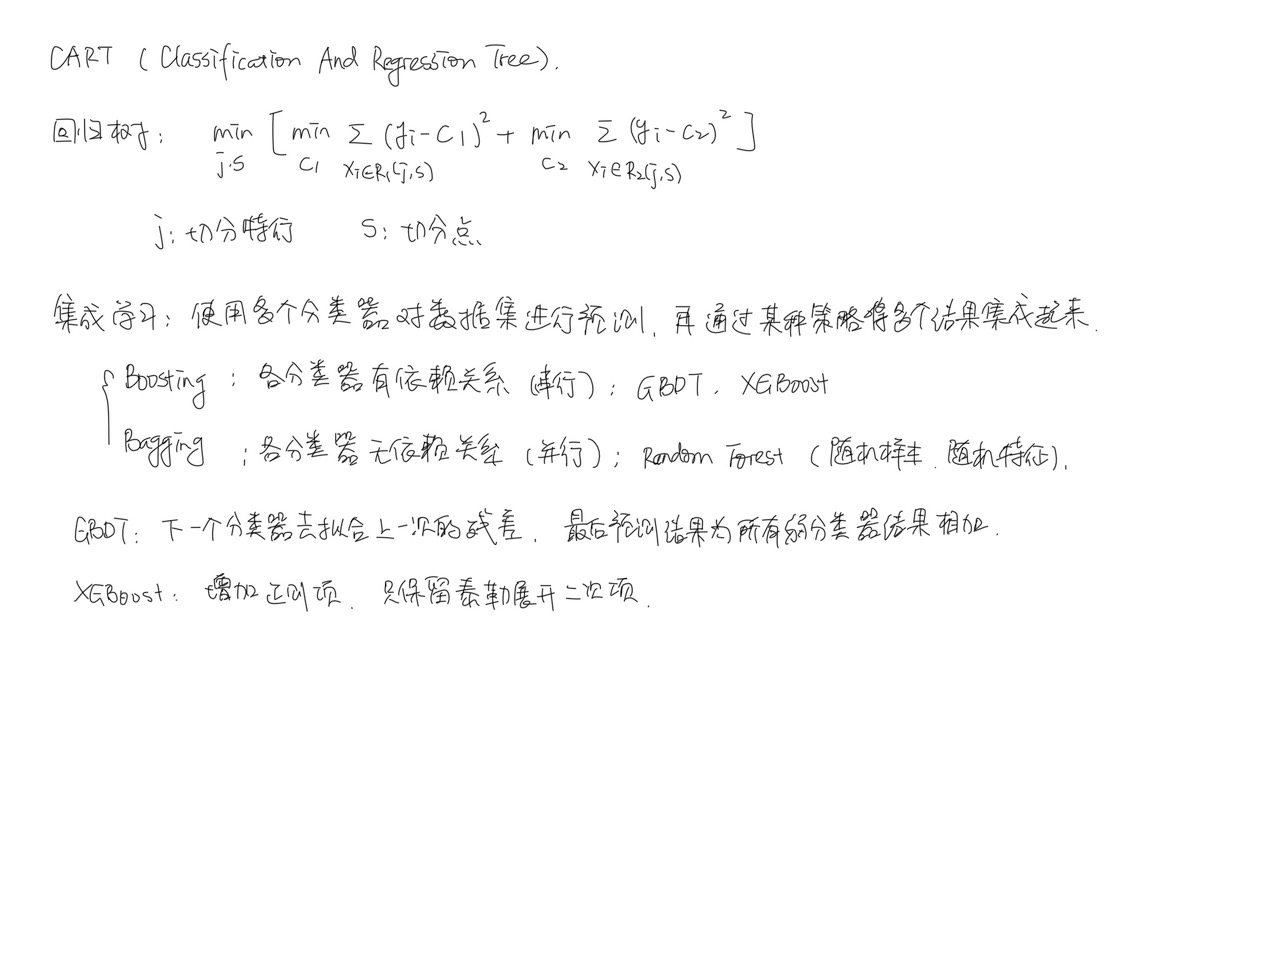 CART (Classification And Regression Tree).
回归树: min [ min Σ (yi-C1)² + min Σ (yi-C2)² ]
j.s C1 xi∈R1(j,s) C2 xi∈R2(j,s)
j: 切分特征 S: 切分点
集成学习: 使用多个分类器对数据集进行预测, 再通过某种策略将多个结果集成起来.
Boosting: 各分类器有依赖关系 (串行); GBDT. XGBoost
Bagging: 各分类器无依赖关系 (并行); Random Forest (随机样本. 随机特征).
GBDT: 下一个分类器去拟合上一次的残差. 最后预测结果为所有弱分类器结果相加.
XGBoost: 增加正则项. 只保留泰勒展开二次项.